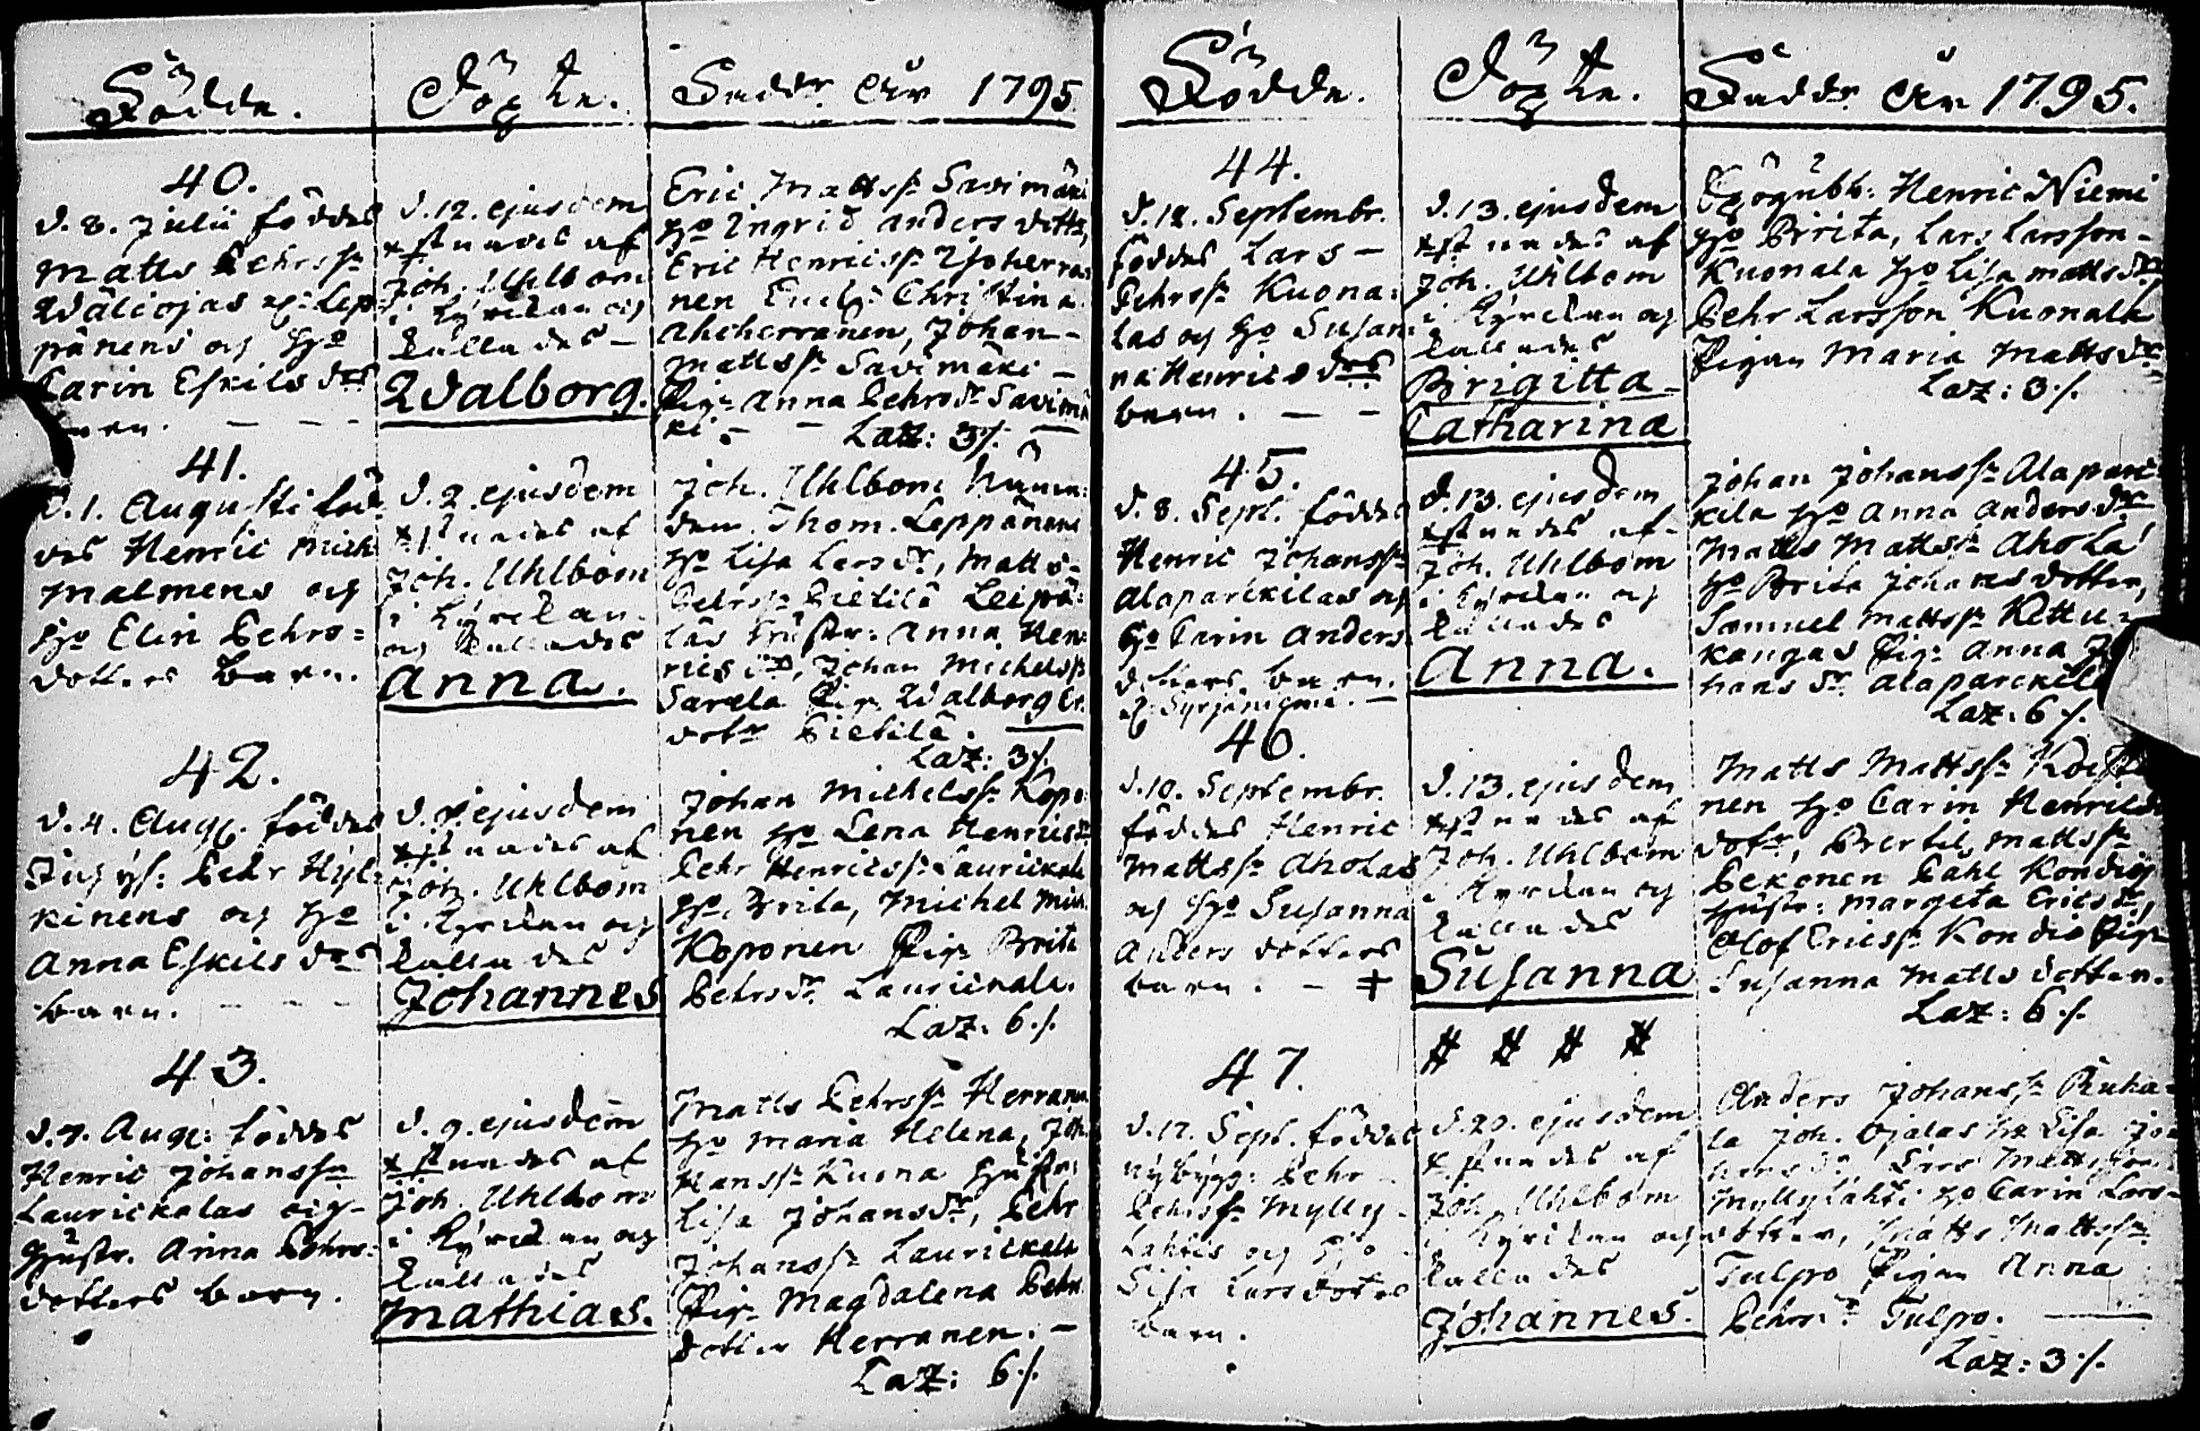 Födde.
Döpte.
Faddr År 1795.
40.
d. 8. Julii föddes
Matts Pehrss:
Wäliojas Lep
pänens och H:o
Carin Eskils drs
barn. - - -
d. 12. ejusdem
Xstnades af
Joh. Uhlbom
i Kyrckan och
kallades -
Walborg.
Eric Mattss: Savimäki
H:o Ingrid Anders dottr,
Eric Henricss:
nen Christina
Johan -
Mattss: Savimäki -
Pig: Anna Pehrsdr Savimä
ki - - Laz: 3/. -
41.
d. 1. Augusti föd
des Henric Mich:
Malmens och
H:o Elin Pehrs=
dotters barn.
d. 2. ejusdem
Xstnades af
Joh. Uhlbom
i Kyrckan
och kallades
Anna.
Joh. Uhlbom
Thom. Leppänens
H:o Lisa Larsdr, Matts
Pehrss: Pietilä Leipä=
läs Hustr: Anna Hen
rics dr, Johan Michelss:
Sarela Pig: Walborg Er.
dotr Pietilä.
Laz: 3/.
42.
d. 4. Aug: föddes
Pehr Hyt
kinens och H:o
Anna Eskils drs
barn. - - -
d. ejusdem
Xstnades af
Joh. Uhlbom
i Kyrckan och
kallades
Johannes
Johan Michelss: Kopo
nen H:o Lena Henricsdr
Pehr Henricss: Laurickala
H:o Brita, Michel Mich.
Koponen Pig: Brita
Pehrsdr. Laurickala.
Laz: 6/.
43.
d. 7. Aug: föddes
Henric Johanssn
Laurickalas och
Hustr. Anna Pehrs=
dotters barn.
d. 9. ejusdem
Xstnades af
Joh. Uhlbom
i Kyrckan och
kallades
Mathias.
Matts Pehrss: Herranen
H:o Maria Helena, Joh.
Hanss: Kuona Hustr:
Lisa Johansdr, Pehr
Johanss: Laurickala
Pig: Magdalena Pehrs
dotter Herranen. -
Laz: 6/.
Födde.
Döpte.
Faddr År 1795.
44.
d. 12. Septembr.
föddes Lars -
Pehrss: Kuona=
las och H:o Susan
na Henrics drs
barn. - -
d. 13. ejusdem
Xstnades af
Joh. Uhlbom
i Kyrckan och
kallades
Birigitta
Catharina
Henric Niemi
H:o Brita, Lars Larsson -
Kuonala H:o Lisa Mattsdr
Pehr Larsson Kuonala
Pigan Maria Mattsdr
Laz: 3/.
45.
d. 8. Sept. föddes
Henric Johanss:
Alaparckilas och
H:o Carin Anders
dotters barn.
d. 13. ejusdem
Xstnades af
Joh. Uhlbom
i Kyrckan och
kallades
Anna.
Johan Johanss: Alapare
kila H:o Anna Andersdr
Matts Mattss: Ahola
H:o Brita Johans dotter,
Samuel Mattss: Kettu=
kangas Pig: Anna Jo
hans dr. Alaparckila
Laz: 6/.
46.
d. 10. Septembr.
föddes Henric
Mattss: Aholas
och H:o Susanna
Anders dotters
barn. - ‡
d. 13. ejusdem
Xstnades af
Joh. Uhlbom
i Kyrckan och
kallades
Susanna
Matts Mattss:
nen H:o Carin Henrics
dotr, Bertil Mattss:
Pekonen Pahl Kondio
Hustr: Margeta Ericsdr,
Olof Ericss: Kondio Pig:
Susanna Matts dotter.
Laz: 6/.
# # # #
47.
d. 17. Sept. föddes
nybygg: Pehr
Pehrss: Mylly
lahtis och H:o
Lisa Larsdotrs
barn.
d. 20. ejusdem
Xstnades af
Joh. Uhlbom
i Kyrckan och
kallades
Johannes.
Anders Johanss: Ruha=
la Joh. Ojalas H: Lisa Jo
hansdr Lars Mattsson
Myllylahti H:o Carin Lars
dotter, Matts Mattss:
Tulpo Pigan Anna
Pehrsdr. Tulpo.
Laz: 3/.